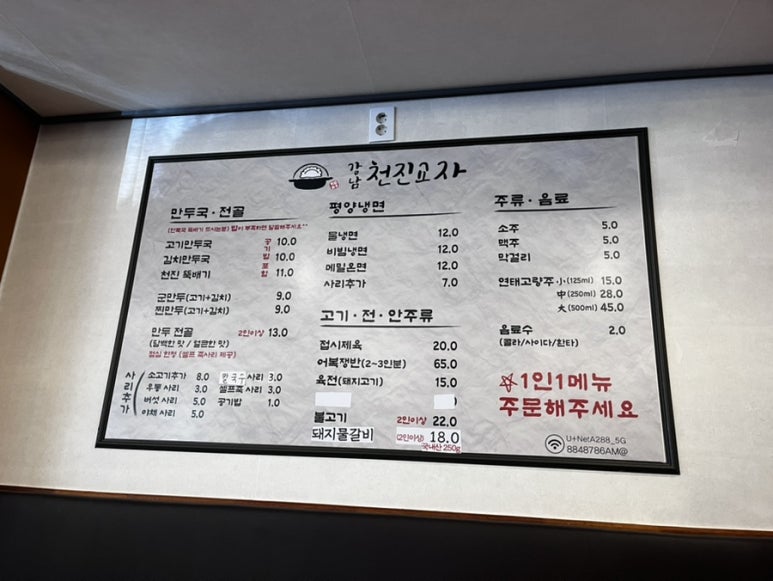 강남 천진교자
만두국 · 전골
고기만두국 10.0
김치만두국 10.0
천진 뚝배기 11.0
공기밥포함
군만두(고기+김치) 9.0
찐만두(고기+김치) 9.0
만두 전골 2인이상 13.0
(담백한 맛 / 얼큰한 맛)
점심 한정 (셀프 죽사리 제공)
사리추가
소고기추가 8.0 칼국수 사리 3.0
우동 사리 3.0 셀프죽 사리 3.0
버섯 사리 5.0 공기밥 1.0
야채 사리 5.0
평양냉면
물냉면 12.0
비빔냉면 12.0
메밀온면 12.0
사리추가 7.0
고기 · 전 · 안주류
접시제육 20.0
어복쟁반(2~3인분) 65.0
육전(돼지고기) 15.0
불고기 2인이상 22.0
돼지물갈비 (2인이상) 18.0
국내산 250g
주류 · 음료
소주 5.0
맥주 5.0
막걸리 5.0
연태고량주 · 小 (125ml) 15.0
中 (250ml) 28.0
大 (500ml) 45.0
음료수 2.0
(콜라/사이다/환타)
1인1메뉴
주문해주세요
U+NetA288_5G
8848786AM@